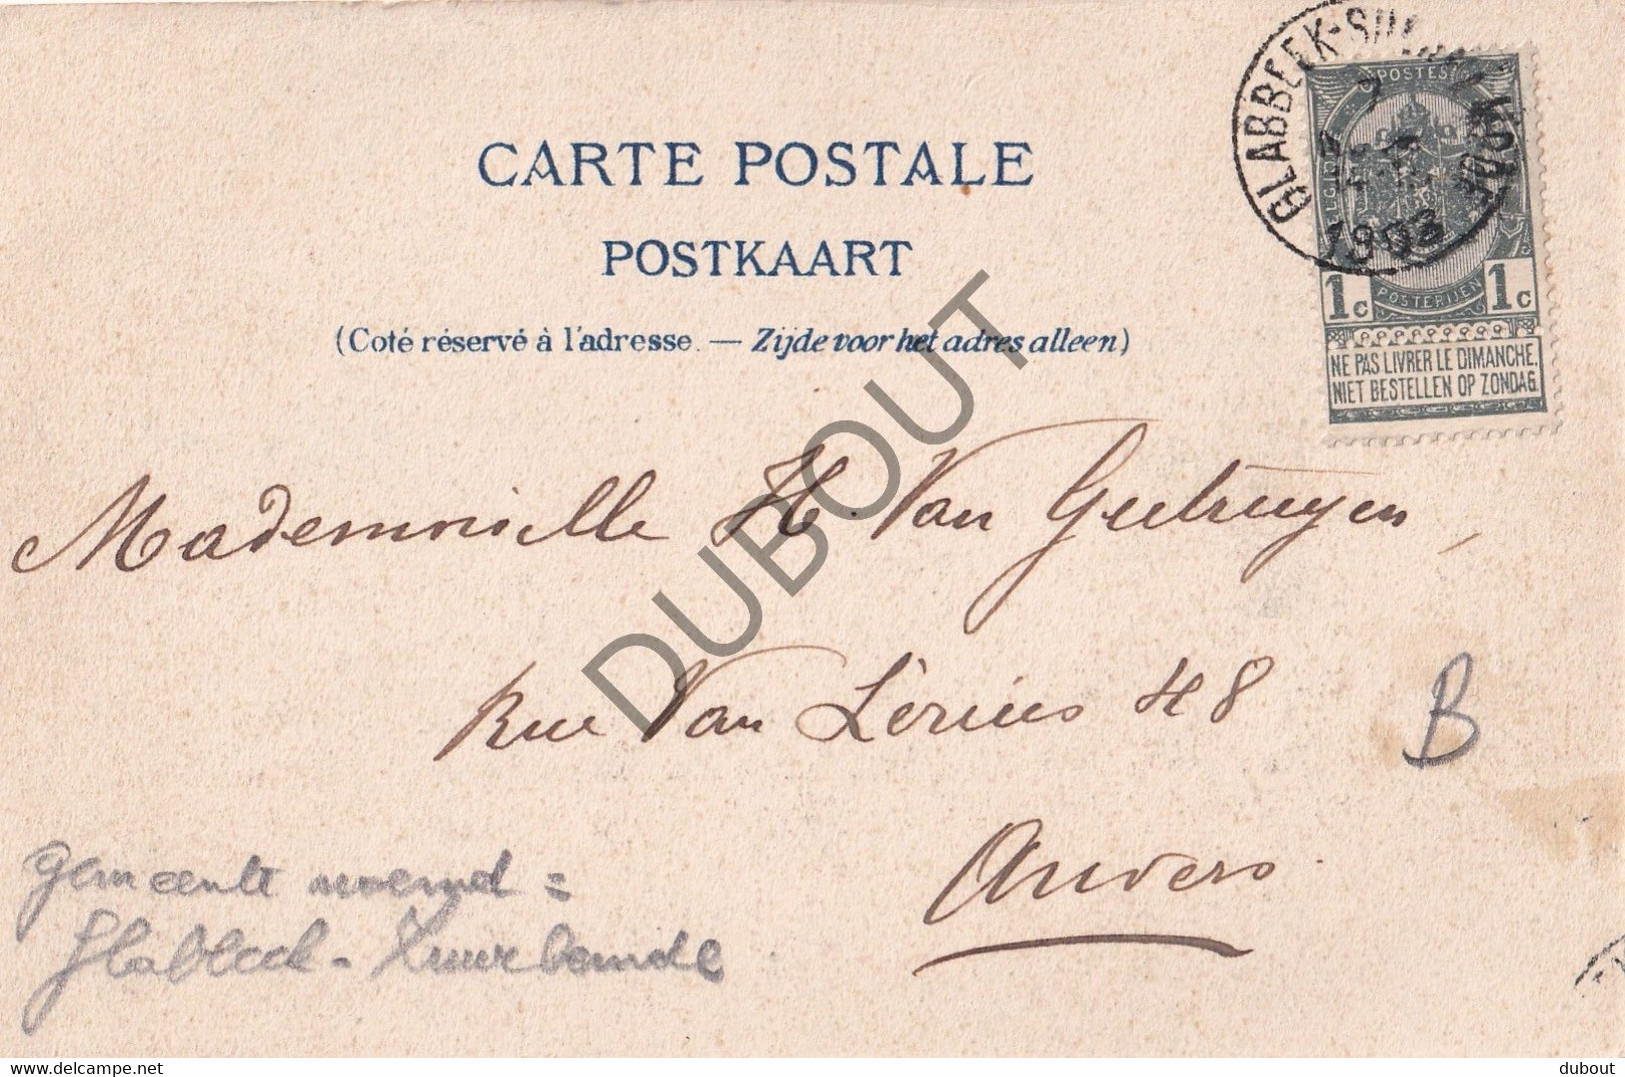 GLABBEEK-SU
1903
POSTES
1c POSTERIJEN 1c
NE PAS LIVRER LE DIMANCHE.
NIET BESTELLEN OP ZONDAG.
CARTE POSTALE
POSTKAART
(Coté réservé à l'adresse. — Zijde voor het adres alleen)
Mademoiselle H. Van Geetruyen,
Rue Van Lérius 48
B
Anvers.
gemeente noemd =
Glabbeek - Zuurbemde
DUBOUT
delcampe.net
dubout